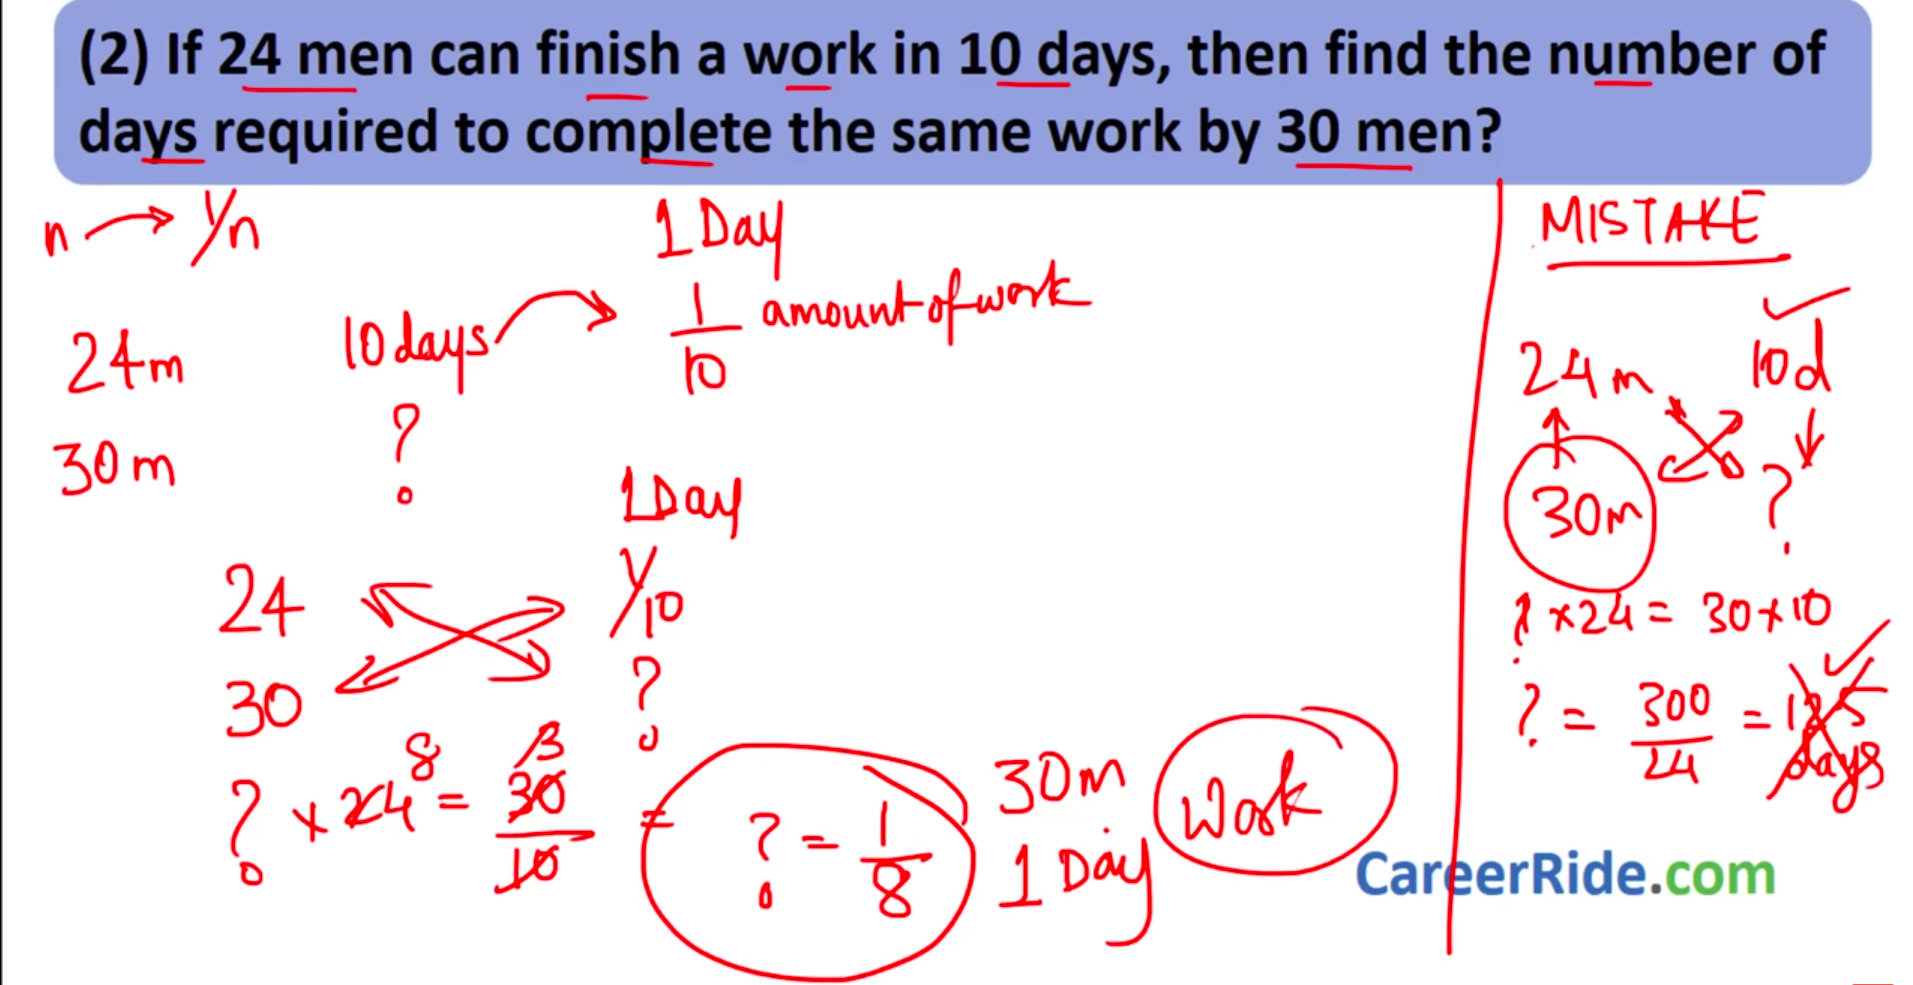 (2) If 24 men can finish a work in 10 days, then find the number of
days required to complete the same work by 30 men?
n → 1/n
24m 10 days → 1 Day
1/10 amount of work
30m ?
1 Day
24 1/10
30 ?
? × 24 8 = 3 30/10 =
? = 1/8
30m
1 Day
Work
MISTAKE
24m 10d
30m ?
? × 24 = 30 × 10
? = 300/24 = 12.5
days
CareerRide.com